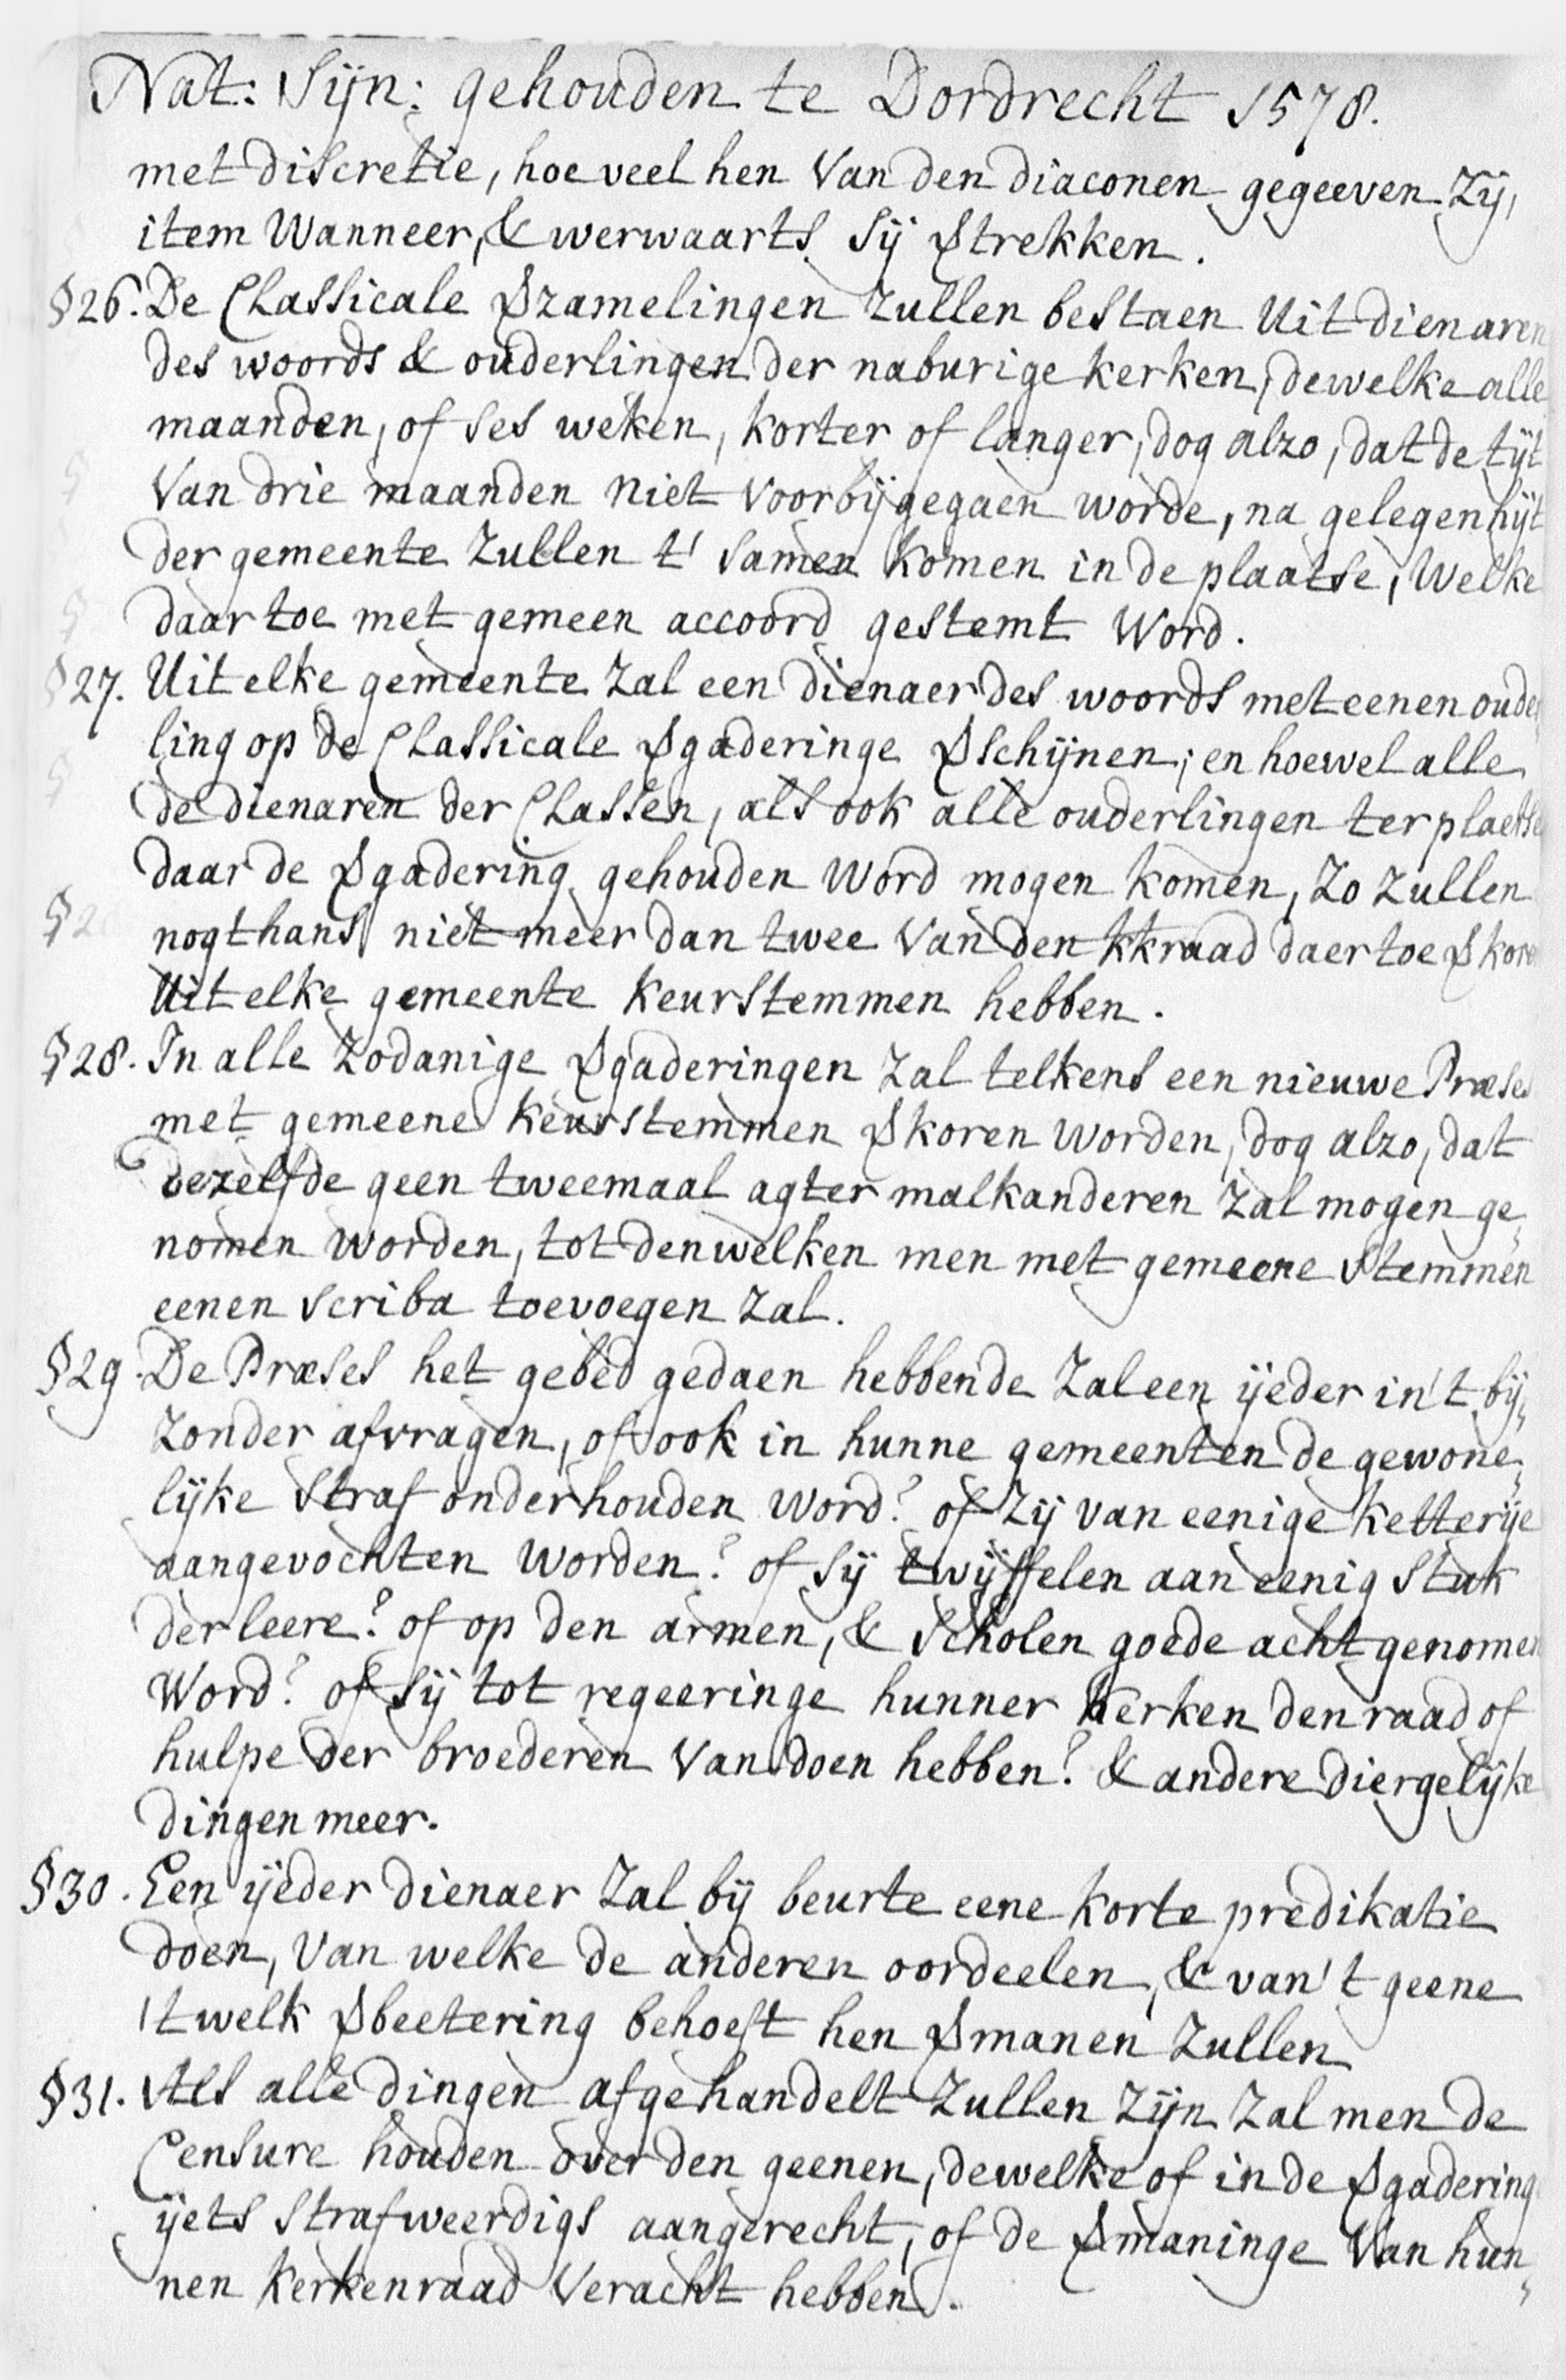 Nat: Sijn: gehouden te Dordrecht 1578.
met discretie, hoe veel hen Van den diaconen gegeeven zij,
item Wanneer, & werwaarts sij strekken.
§26. De Classicale Vszamelingen zullen bestaen Uit dienaren
des woords & ouderlingen der naburige kerken, dewelke alle
maanden, of ses weken, korter of langer, dog alzo, dat de tijt
Van drie maanden niet voorbijgegaen worde, na gelegenhijt
der gemeente zullen t' samen komen in de plaatse, Welke
daar toe met gemeen accoord gestemt Word.
§27. Uit elke gemeente zal een dienaer des woords met eenen ouder
ling op de Classicale Vsgaderinge Vsschijnen; en hoewel alle
de dienaren der Classen, als ook alle ouderlingen ter plaetse
daar de Vsgadering gehouden Word mogen komen, zo zullen
nogthans niet meer dan twee Van den kkraad daer toe Vskoren
Uit elke gemeente keurstemmen hebben.
§28. In alle zodanige Vsgaderingen zal telkens een nieuwe Præses
met gemeene keurstemmen Vskoren worden, dog alzo, dat
dezelfde geen tweemaal agter malkanderen zal mogen ge„
nomen worden, tot denwelken men met gemeene stemmen
eenen scriba toevoegen zal.
§29. De Præses het gebed gedaen hebbende zal een ijeder in 't bij„
zonder afvragen, of ook in hunne gemeenten de gewone„
lijke straf onderhouden word? of zij van eenige ketterije
aangevochten worden? of sij twijffelen aan eenig stuk
der leere? of op den armen, & scholen goede acht genomen
Word? of sij tot regeeringe hunner kerken den raad of
hulpe der broederen Van doen hebben? & andere diergelijke
dingen meer.
§30. Een ijeder dienaer zal bij beurte eene korte predikatie
doen, Van welke de anderen oordeelen, & van 't geene
't welk Vsbeetering behoeft hen Vsmanen zullen
§31. Als alle dingen afgehandelt zullen zijn zal men de
Censure houden over den geenen, dewelke of in de Vsgaderinge
ijets strafweerdigs aangerecht, of de Vsmaninge Van hun„
nen kerkenraad veracht hebben.